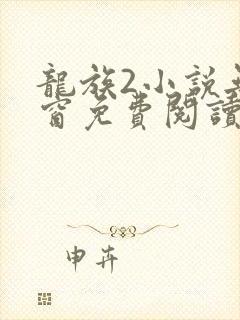 龍族2小說
窗免費閱讀
申卉